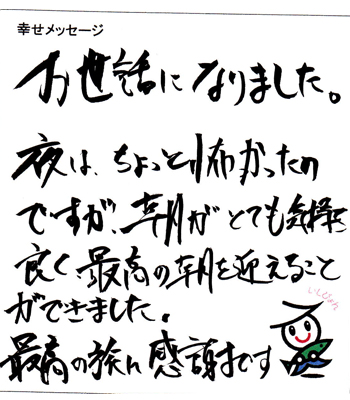 幸せメッセージ
お世話になりました。
夜は、ちょっと怖かったの
ですが、朝がとても気持ち
良く最高の朝を迎えること
ができました。
最高の旅に感謝です